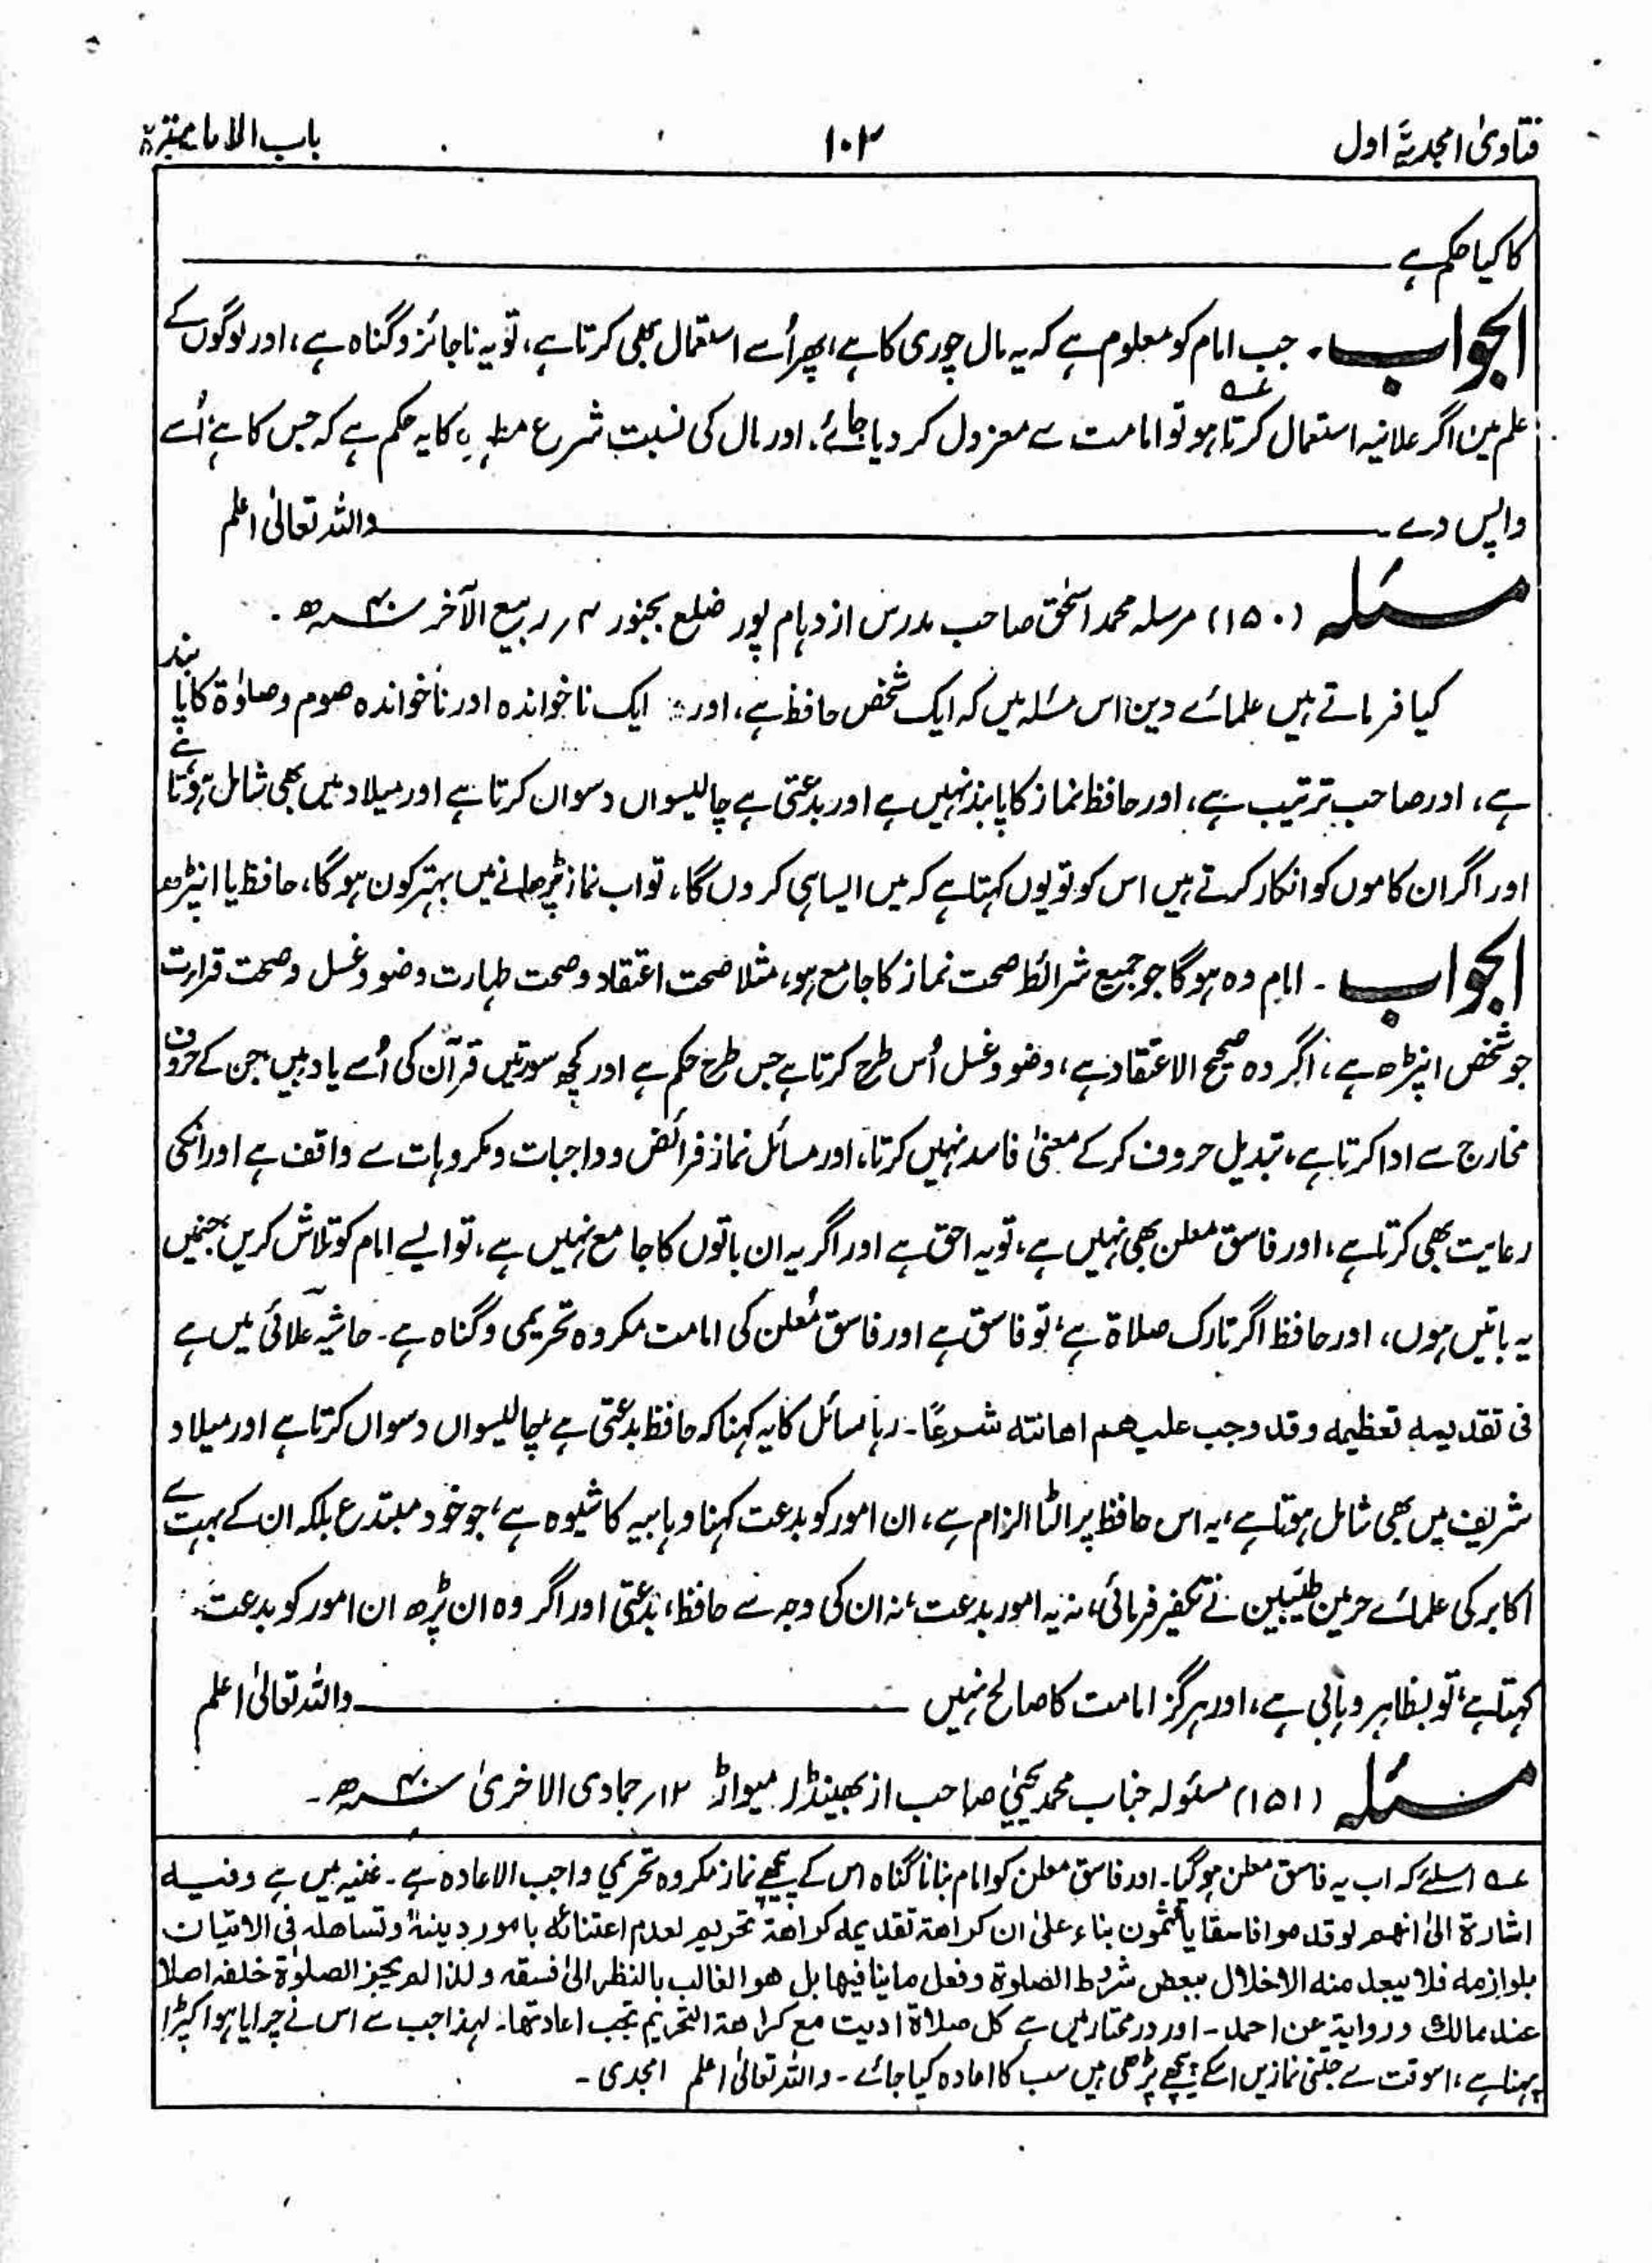 فتاویٰ امجدیہ اول ۱۰۲ باب الامامۃ
کا کیا حکم ہے
الجواب ۔ جب امام کو معلوم ہے کہ یہ مال چوری کا ہے، پھر اُسے استعمال بھی کرتا ہے، تو یہ ناجائز و گناہ ہے، اور لوگوں کے
علم میں اگر علانیہ استعمال کرتا ہو عہ تو امامت سے معزول کر دیا جائے، اور مال کی نسبت شرع مطہرہ کا یہ حکم ہے کہ جس کا ہے اُسے
واپس دے ۔ واللہ تعالیٰ اعلم
مسئلہ (۱۵۰) مرسلہ محمد اسحٰق صاحب مدرس از دہام پور ضلع بجنور ۴؍ ربیع الآخر سنہ ۴۰ھ ۔
کیا فرماتے ہیں علمائے دین اس مسئلہ میں کہ ایک شخص حافظ ہے، اور ایک ناخواندہ اور ناخواندہ صوم و صلوٰۃ کا پابند
ہے، اور صاحب ترتیب ہے، اور حافظ نماز کا پابند نہیں ہے اور بدعتی ہے چالیسواں دسواں کرتا ہے اور میلاد میں بھی شامل ہوتا ہے
اور اگر ان کاموں کو انکار کرتے ہیں اس کو تو یوں کہتا ہے کہ میں ایسا ہی کروں گا، تو اب نماز پڑھانے میں بہتر کون ہوگا، حافظ یا انپڑھ
الجواب ۔ امام وہ ہوگا جو جمیع شرائط صحت نماز کا جامع ہو، مثلا صحت اعتقاد و صحت طہارت وضو و غسل و صحت قرارت
جو شخص انپڑھ ہے، اگر وہ صحیح الاعتقاد ہے، وضو و غسل اُس طرح کرتا ہے جس طرح حکم ہے اور کچھ سورتیں قرآن کی اُسے یاد ہیں جن کے حروف
مخارج سے ادا کرتا ہے، تبدیل حروف کر کے معنیٰ فاسد نہیں کرتا، اور مسائل نماز فرائض و واجبات و مکروہات سے واقف ہے اور انکی
رعایت بھی کرتا ہے، اور فاسق معلن بھی نہیں ہے، تو یہ احق ہے اور اگر یہ ان باتوں کا جامع نہیں ہے، تو ایسے امام کو تلاش کریں جنمیں
یہ باتیں ہوں، اور حافظ اگر تارک صلاۃ ہے، تو فاسق ہے اور فاسق مُعلن کی امامت مکروہ تحریمی و گناہ ہے ۔ حاشیہ علائی میں ہے
فی تقدیمہ تعظیمہ وقد وجب علیہم اھانتہ شرعًا ۔ رہا سائل کا یہ کہنا کہ حافظ بدعتی ہے چالیسواں دسواں کرتا ہے اور میلاد
شریف میں بھی شامل ہوتا ہے، یہ اس حافظ پر الٹا الزام ہے، ان امور کو بدعت کہنا وہابیہ کا شیوہ ہے، جو خود مبتدع بلکہ ان کے بہت سے
اکابر کی علمائے حرمین طیبین نے تکفیر فرمائی، نہ یہ امور بدعت، نہ ان کی وجہ سے حافظ، بدعتی اور اگر وہ ان پڑھ ان امور کو بدعت
کہتا ہے، تو بظاہر وہابی ہے، اور ہرگز امامت کا صالح نہیں واللہ تعالیٰ اعلم
مسئلہ (۱۵۱) مسئولہ جناب محمد یحییٰ صاحب از بھینڈر میواڑ ۱۲؍ جمادی الاخریٰ سنہ ۴۰ھ ۔
عہ اسلئے کہ اب یہ فاسق معلن ہو گیا ۔ اور فاسق معلن کو امام بنانا گناہ اس کے پیچھے نماز مکروہ تحریمی واجب الاعادہ ہے ۔ غنیہ میں ہے وفیہ
اشارۃ الیٰ انھم لو قدموا فاسقا یأثمون بناء علیٰ ان کراھۃ تقدیمہ کراھۃ تحریم لعدم اعتنائہ بامور دینہ وتساھلہ فی الاتیان
بلوازمہ فلا یبعد منہ الاخلال ببعض شروط الصلوۃ وفعل ما ینافیھا بل ھو الغالب بالنظر الیٰ فسقہ ولذا لم یجز الصلوٰۃ خلفہ اصلا
عند مالک وروایۃ عن احمد ۔ اور درمختار میں ہے کل صلاۃ ادیت مع کراھۃ التحریم تجب اعادتھا ۔ لہذا جب سے اس نے چرایا ہوا کپڑا
پہنا ہے، اسوقت سے جتنی نمازیں اسکے پیچھے پڑھی ہیں سب کا اعادہ کیا جائے ۔ واللہ تعالیٰ اعلم امجدی ۔